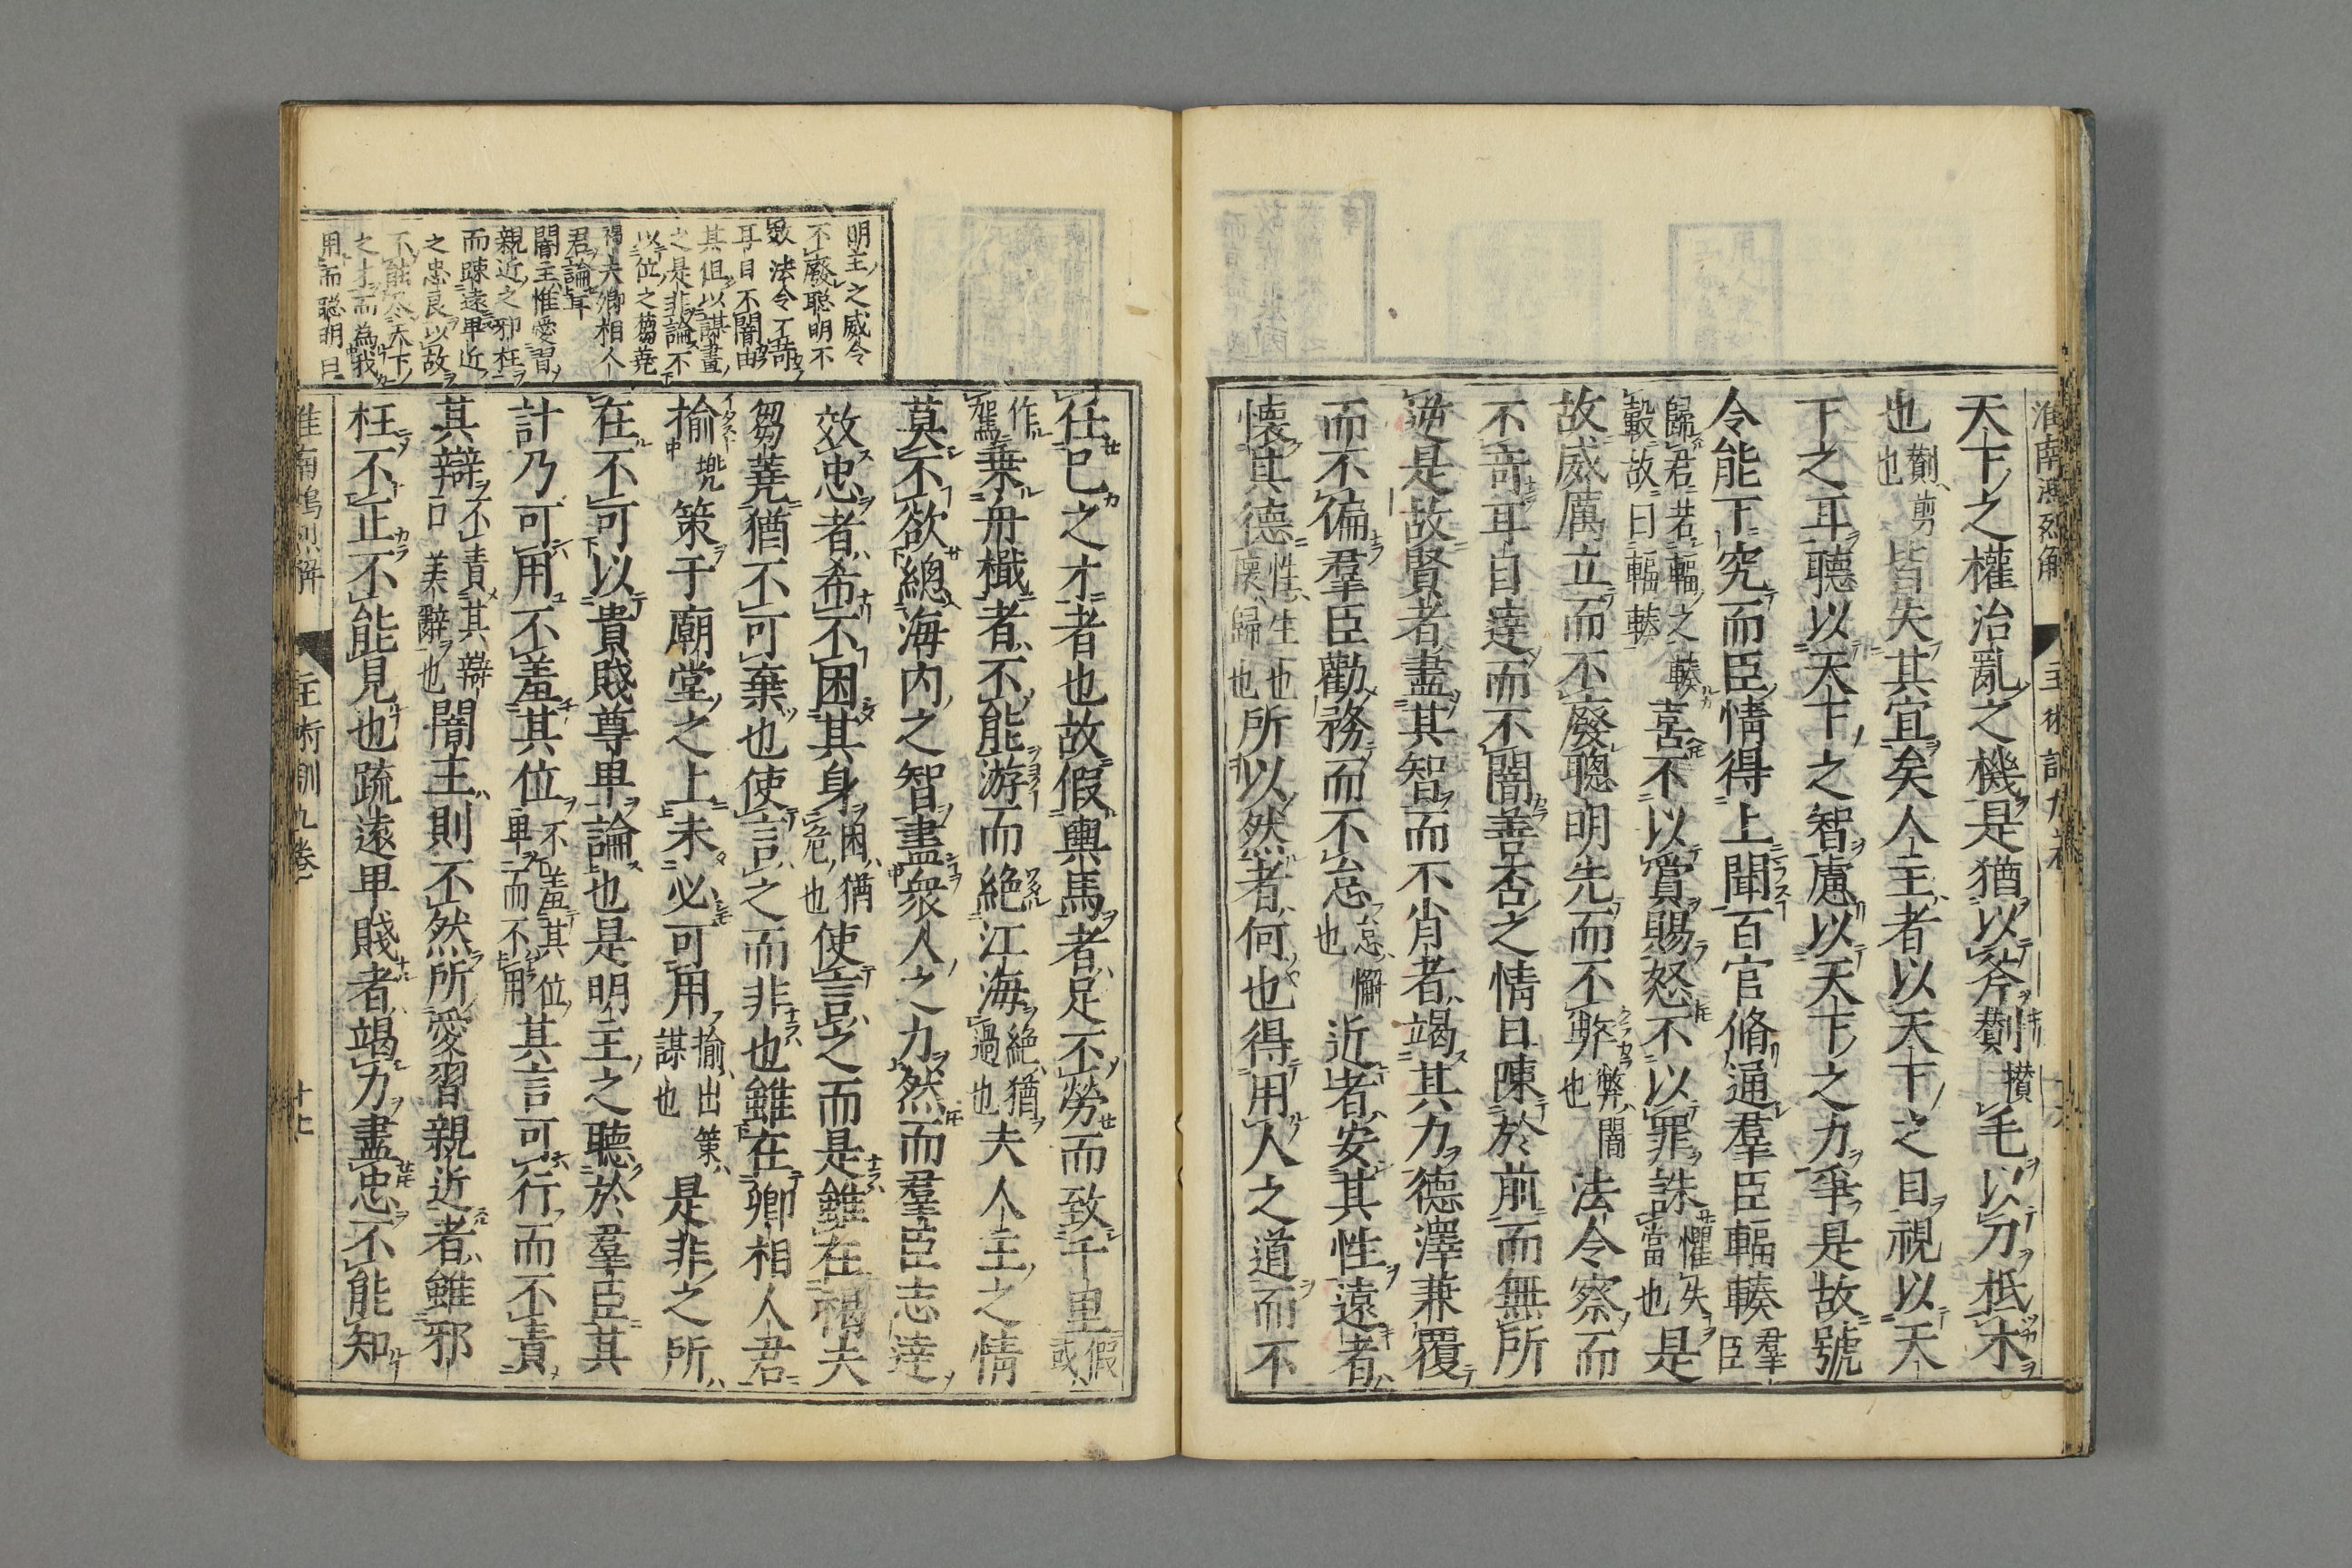 淮南鴻烈解
主術訓九卷
天下之權治亂之機是猶以斧劗毛以刀抵木
也劗剪也皆失其宜矣人主者以天下之目視以天
下之耳聽以天下之智慮以天下之力爭是故號
令能下究而臣情得上聞百官脩通羣臣輻輳羣臣
歸君若輻之輳轂故曰輻輳喜不以賞賜怒不以罪誅懼失當也是
故威厲立而不廢聰明先而不弊弊闇也法令察而
不苛耳目達而不闇善否之情日陳於前而無所
逆是故賢者盡其智而不肖者竭其力德澤兼覆
而不偏羣臣勸務而不怠怠懈也近者安其性遠者
懷其德性生也懷歸也所以然者何也得用人之道而不
明主之威令
不廢聰明不
弊法令不苛
耳目不闇由
其但以謀畫
之是非論不
以位之芻蕘
褐夫卿相人
君論耳
闇主惟愛習
親近之邪枉
而疎遠卑近
之忠良以故
不能尽天下
之才而為我
用而聡明日
任已之才者也故假輿馬者足不勞而致千里假或
作駕乗舟檝者不能游而絶江海絶猶過也夫人主之情
莫不欲總海内之智盡衆人之力然而羣臣志達
效忠者希不困其身困猶危也使言之而是雖在褐夫
芻蕘猶不可棄也使言之而非也雖在卿相人君
揄策于廟堂之上未必可用揄出策謀也是非之所
在不可以貴賤尊卑論也是明主之聽於羣臣其
計乃可用不羞其位不羞其位卑而不用其言可行而不責
其辯不責其辯口美辭也闇主則不然所愛習親近者雖邪
枉不正不能見也疏遠卑賤者竭力盡忠不能知
淮南鴻烈解
主術訓九卷
十七